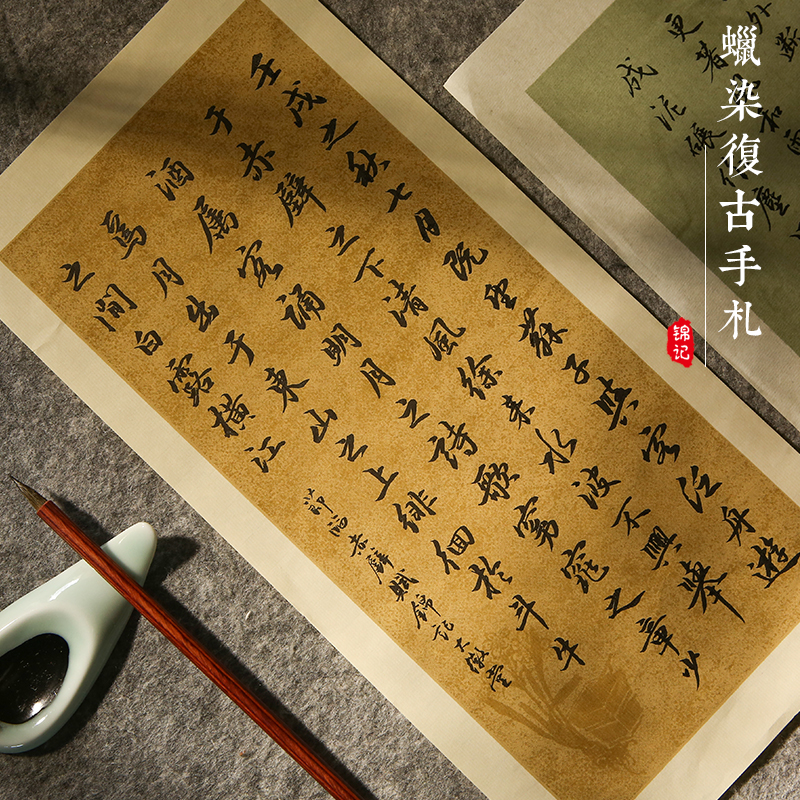 蠟染復古手札
锦记
壬戌之秋七月既望蘇子與客泛舟遊
于赤壁之下清風徐来水波不興舉
酒属客誦明月之詩歌窈窕之章少
焉月出于東山之上徘徊於斗牛
之間白露橫江
節临赤壁賦錦記大徽堂
外断
更著和雨
成泥碾作塵